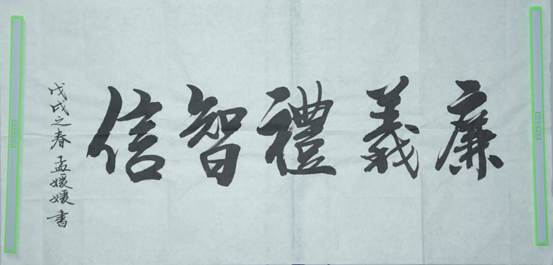 廉義禮智信
戊戌之春 孟媛媛書